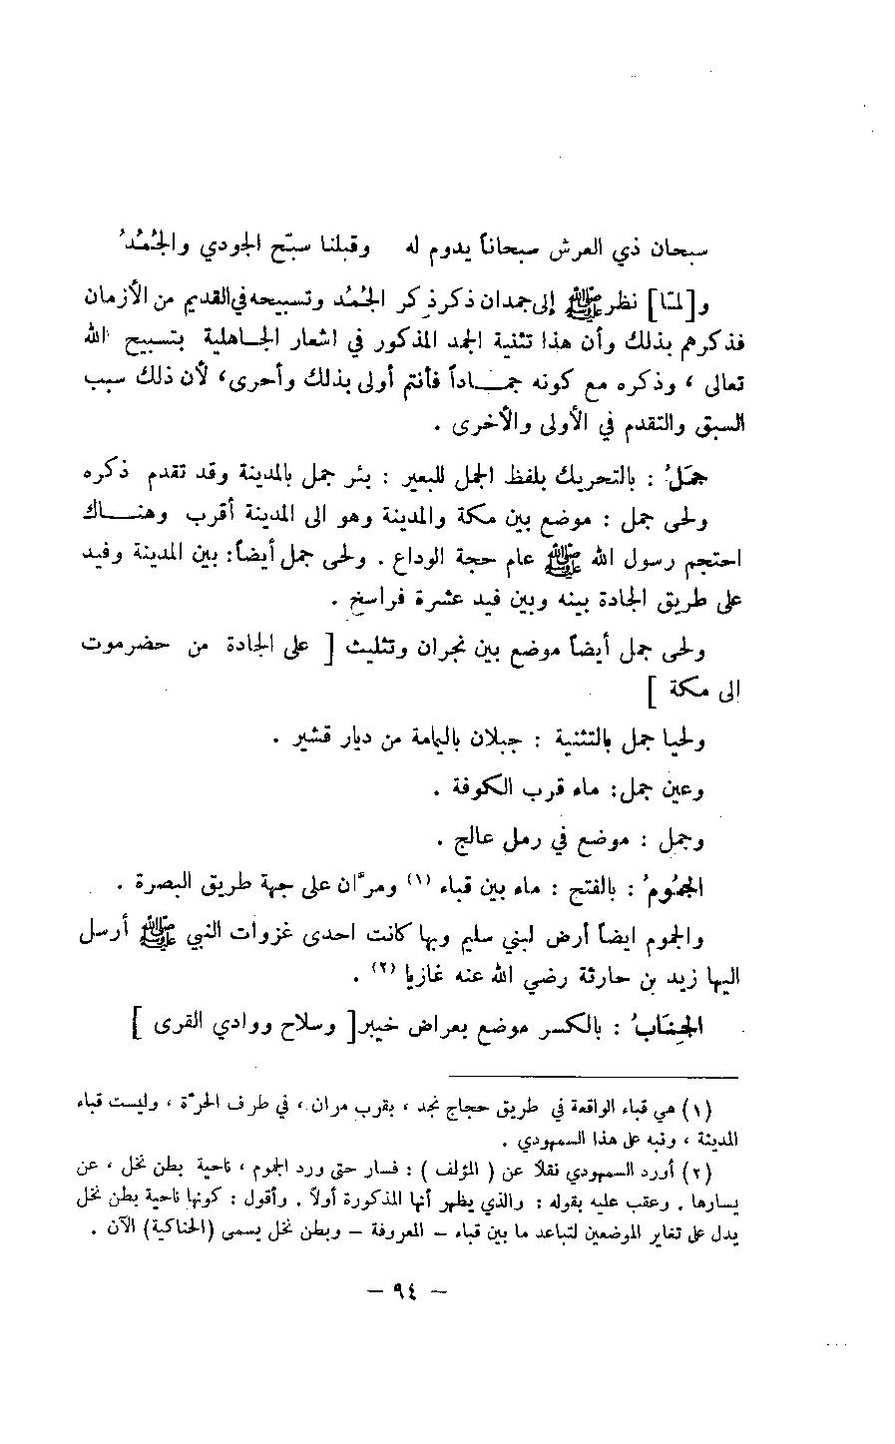 سبحان ذي العرش سبحاناً يدوم له وقبلنا سبّح الجودي والجُمُدُ
و[لمّا] نظر ﷺ إلى جمدان ذكر ذِكر الجُمُد وتسبيحه في القديم من الأزمان
فذكرهم بذلك وأن هذا تثنية الجمد المذكور في اشعار الجاهلية بتسبيح الله
تعالى ، وذكره مع كونه جماداً فأنتم أولى بذلك وأحرى، لأن ذلك سبب
السبق والتقدم في الأولى والأخرى .
جمَلُ : بالتحريك بلفظ الجمل للبعير : بئر جمل بالمدينة وقد تقدم ذكره
ولحى جمل : موضع بين مكة والمدينة وهو الى المدينة أقرب وهناك
احتجم رسول الله ﷺ عام حجة الوداع . ولحى جمل أيضاً: بين المدينة وفيد
على طريق الجادة بينه وبين فيد عشرة فراسخ .
ولحى جمل أيضاً موضع بين نجران وتثليث [ على الجادة من حضرموت
الى مكة ]
ولحيا جمل بالتثنية : جبلان باليمامة من ديار قشير .
وعين جمل: ماء قرب الكوفة .
وجمل : موضع في رمل عالج .
الجَمُومُ : بالفتح : ماء بين قباء (١) ومرَّان على جهة طريق البصرة .
والجموم ايضاً أرض لبني سليم وبها كانت احدى غزوات النبي ﷺ أرسل
اليها زيد بن حارثة رضي الله عنه غازيا (٢) .
الجِنَابُ : بالكسر موضع بعراض خيبر [ وسلاح ووادي القرى ]
(١) هي قباء الواقعة في طريق حجاج نجد ، بقرب مران ، في طرف الحرّة ، وليست قباء
المدينة ، ونبه على هذا السمهودي .
(٢) أورد السمهودي نقلاً عن ( المؤلف ) : فسار حتى ورد الجموم ، ناحية بطن نخل ، عن
يسارها . وعقب عليه بقوله : والذي يظهر أنها المذكورة أولاً . وأقول : كونها ناحية بطن نخل
يدل على تغاير الموضعين لتباعد ما بين قباء – المعروفة – وبطن نخل يسمى (الحناكية) الآن .
– ٩٤ –